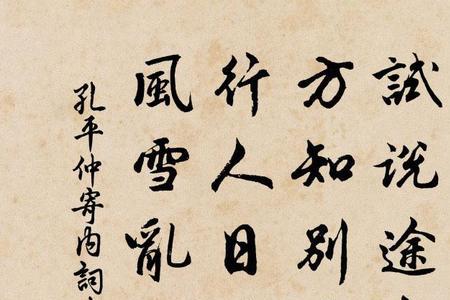 試説途
方知別
行人日
風雪亂
孔平仲寄内詞